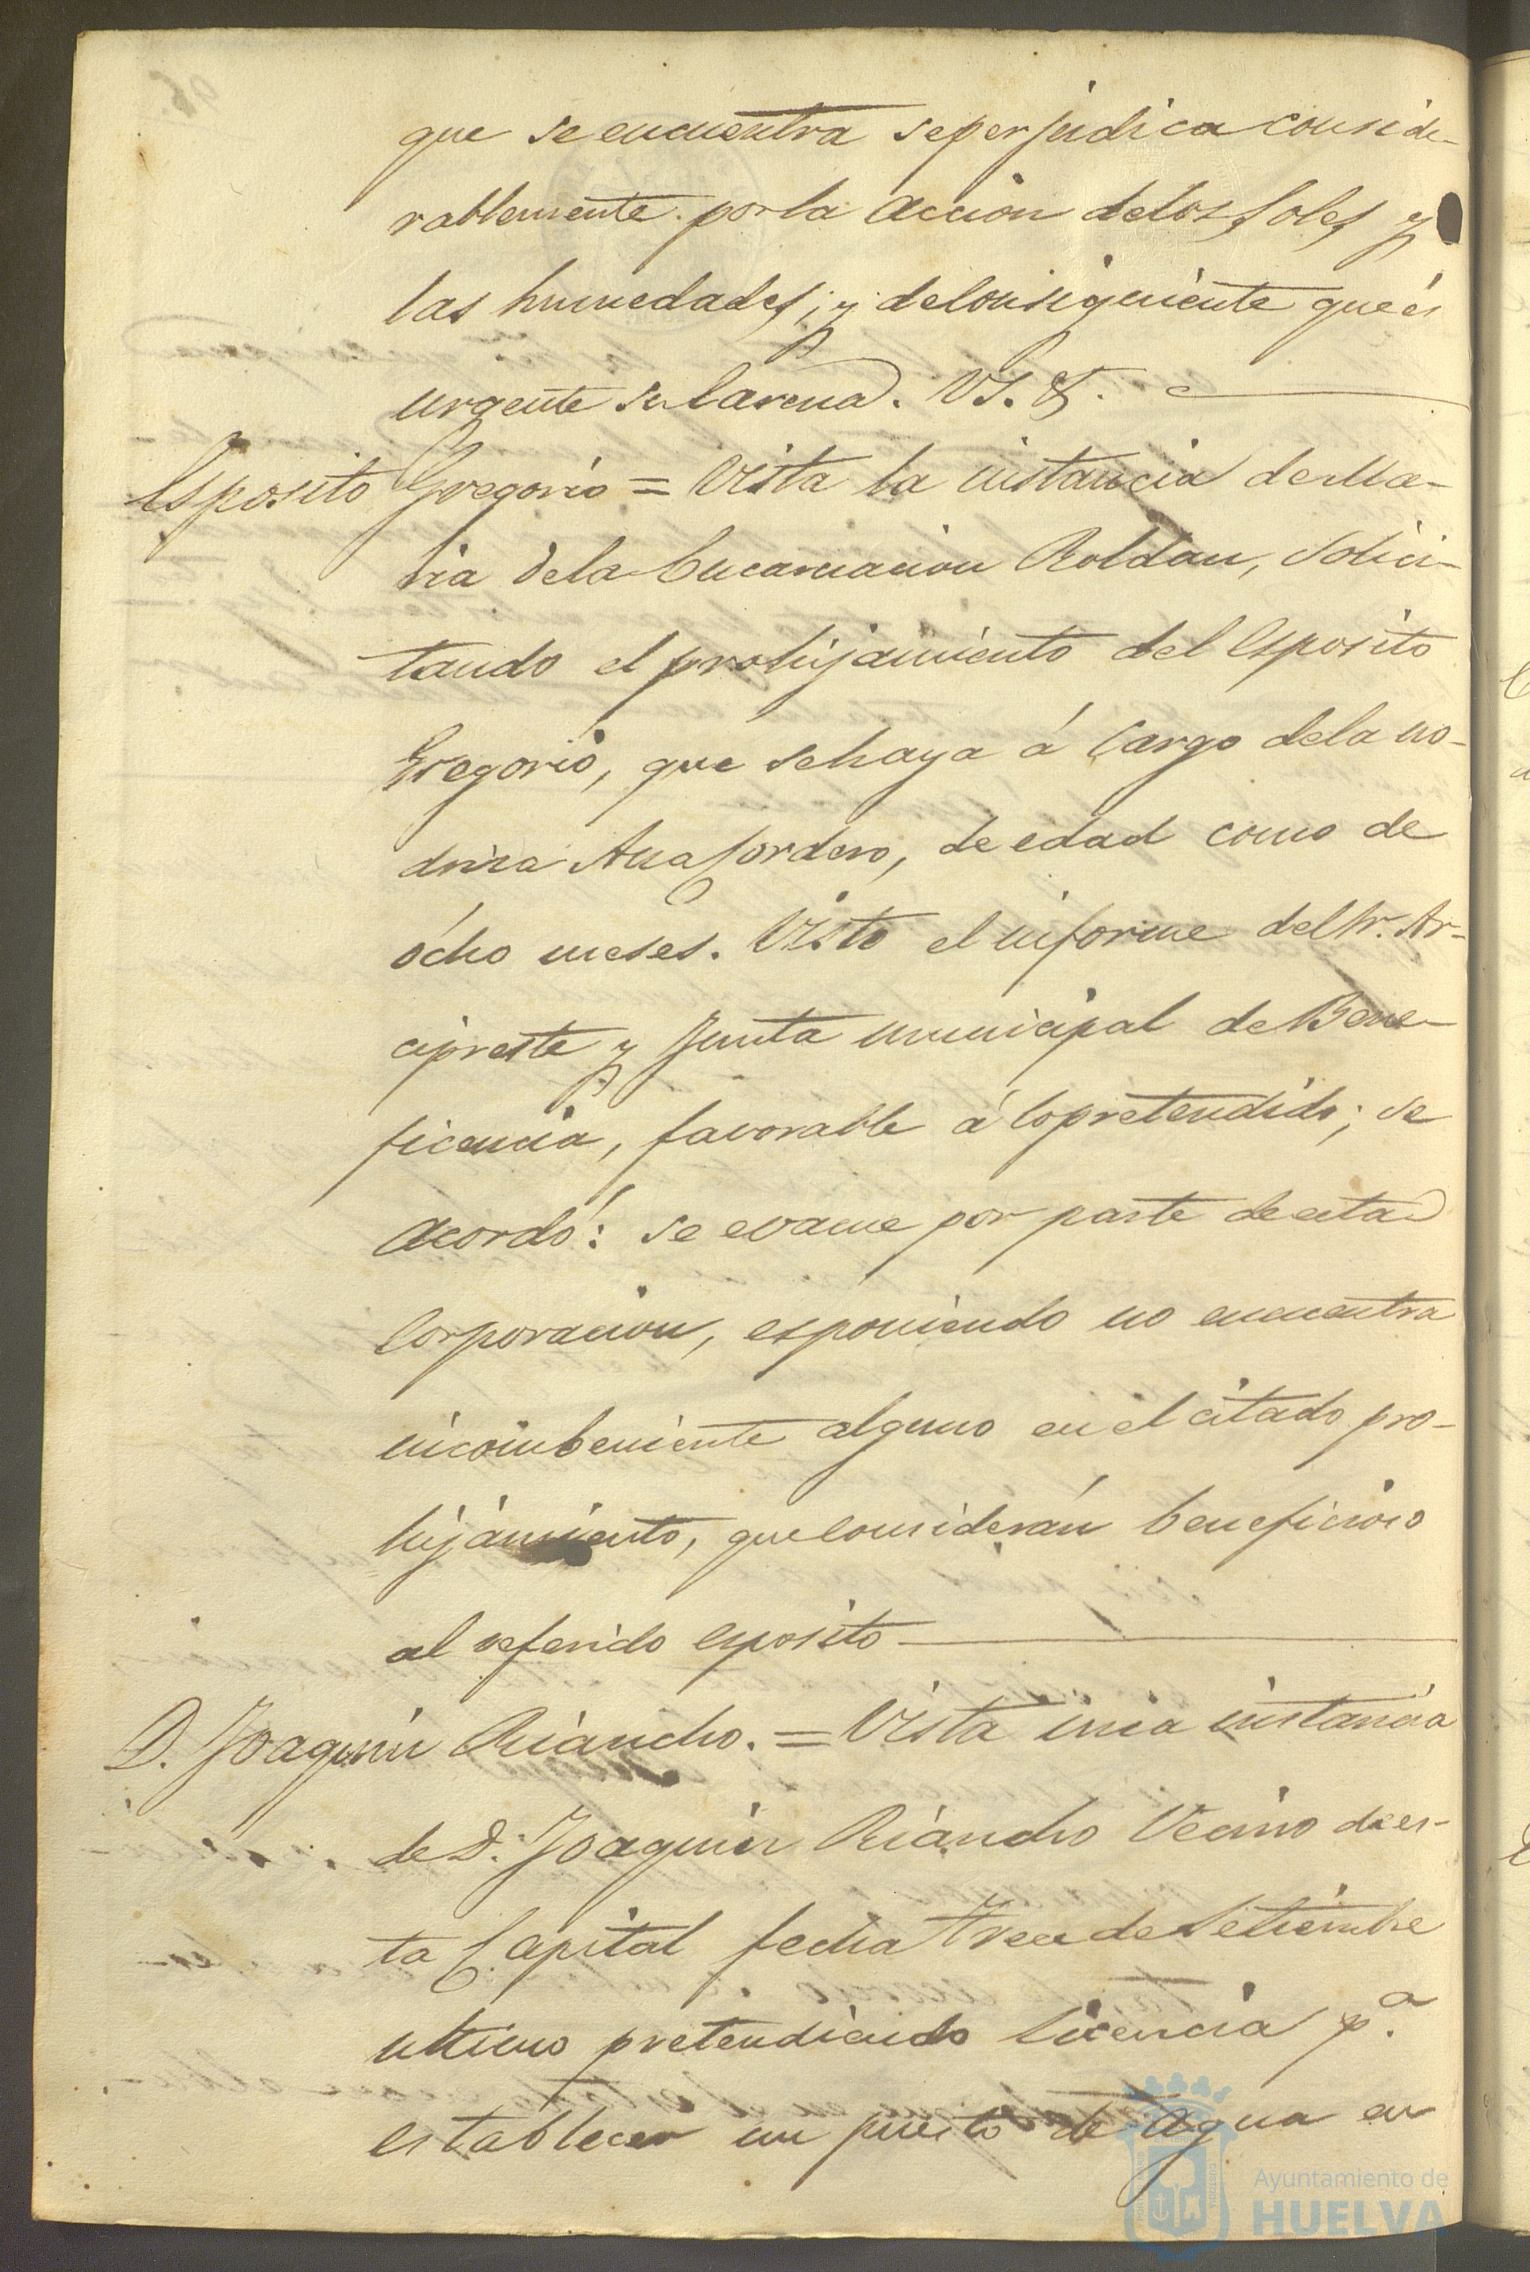 que se encuentra se perjudica conside-
rablemente por la accion de los soles y
las humedades; y de consiguiente que és
urgente su carena. VS. &.
Esposito Gregorio = Vista la instancia de Ma-
ria de la Encarnacion Roldan, solici-
tando el prohijamiento del Esposito
Gregorio, que se haya á cargo de la no-
driza Ana Cordero, de edad como de
ócho meses. Visto el informe del Sr. Ar-
cipreste y Junta municipal de Bene-
ficencia, favorable á lo pretendido; se
acordó: se evacue por parte de esta
Corporacion, esponiendo no encuentra
incombeniente alguno en el citado pro-
hijamiento, que considerán beneficioso
al referido esposito
D. Joaquin Riancho. = Vista una instancia
de D. Joaquin Riancho Vecino de es-
ta Capital fecha trece de Setiembre
ultimo pretendiendo licencia p.ª
establecer un puesto de agua en
Ayuntamiento de
HUELVA